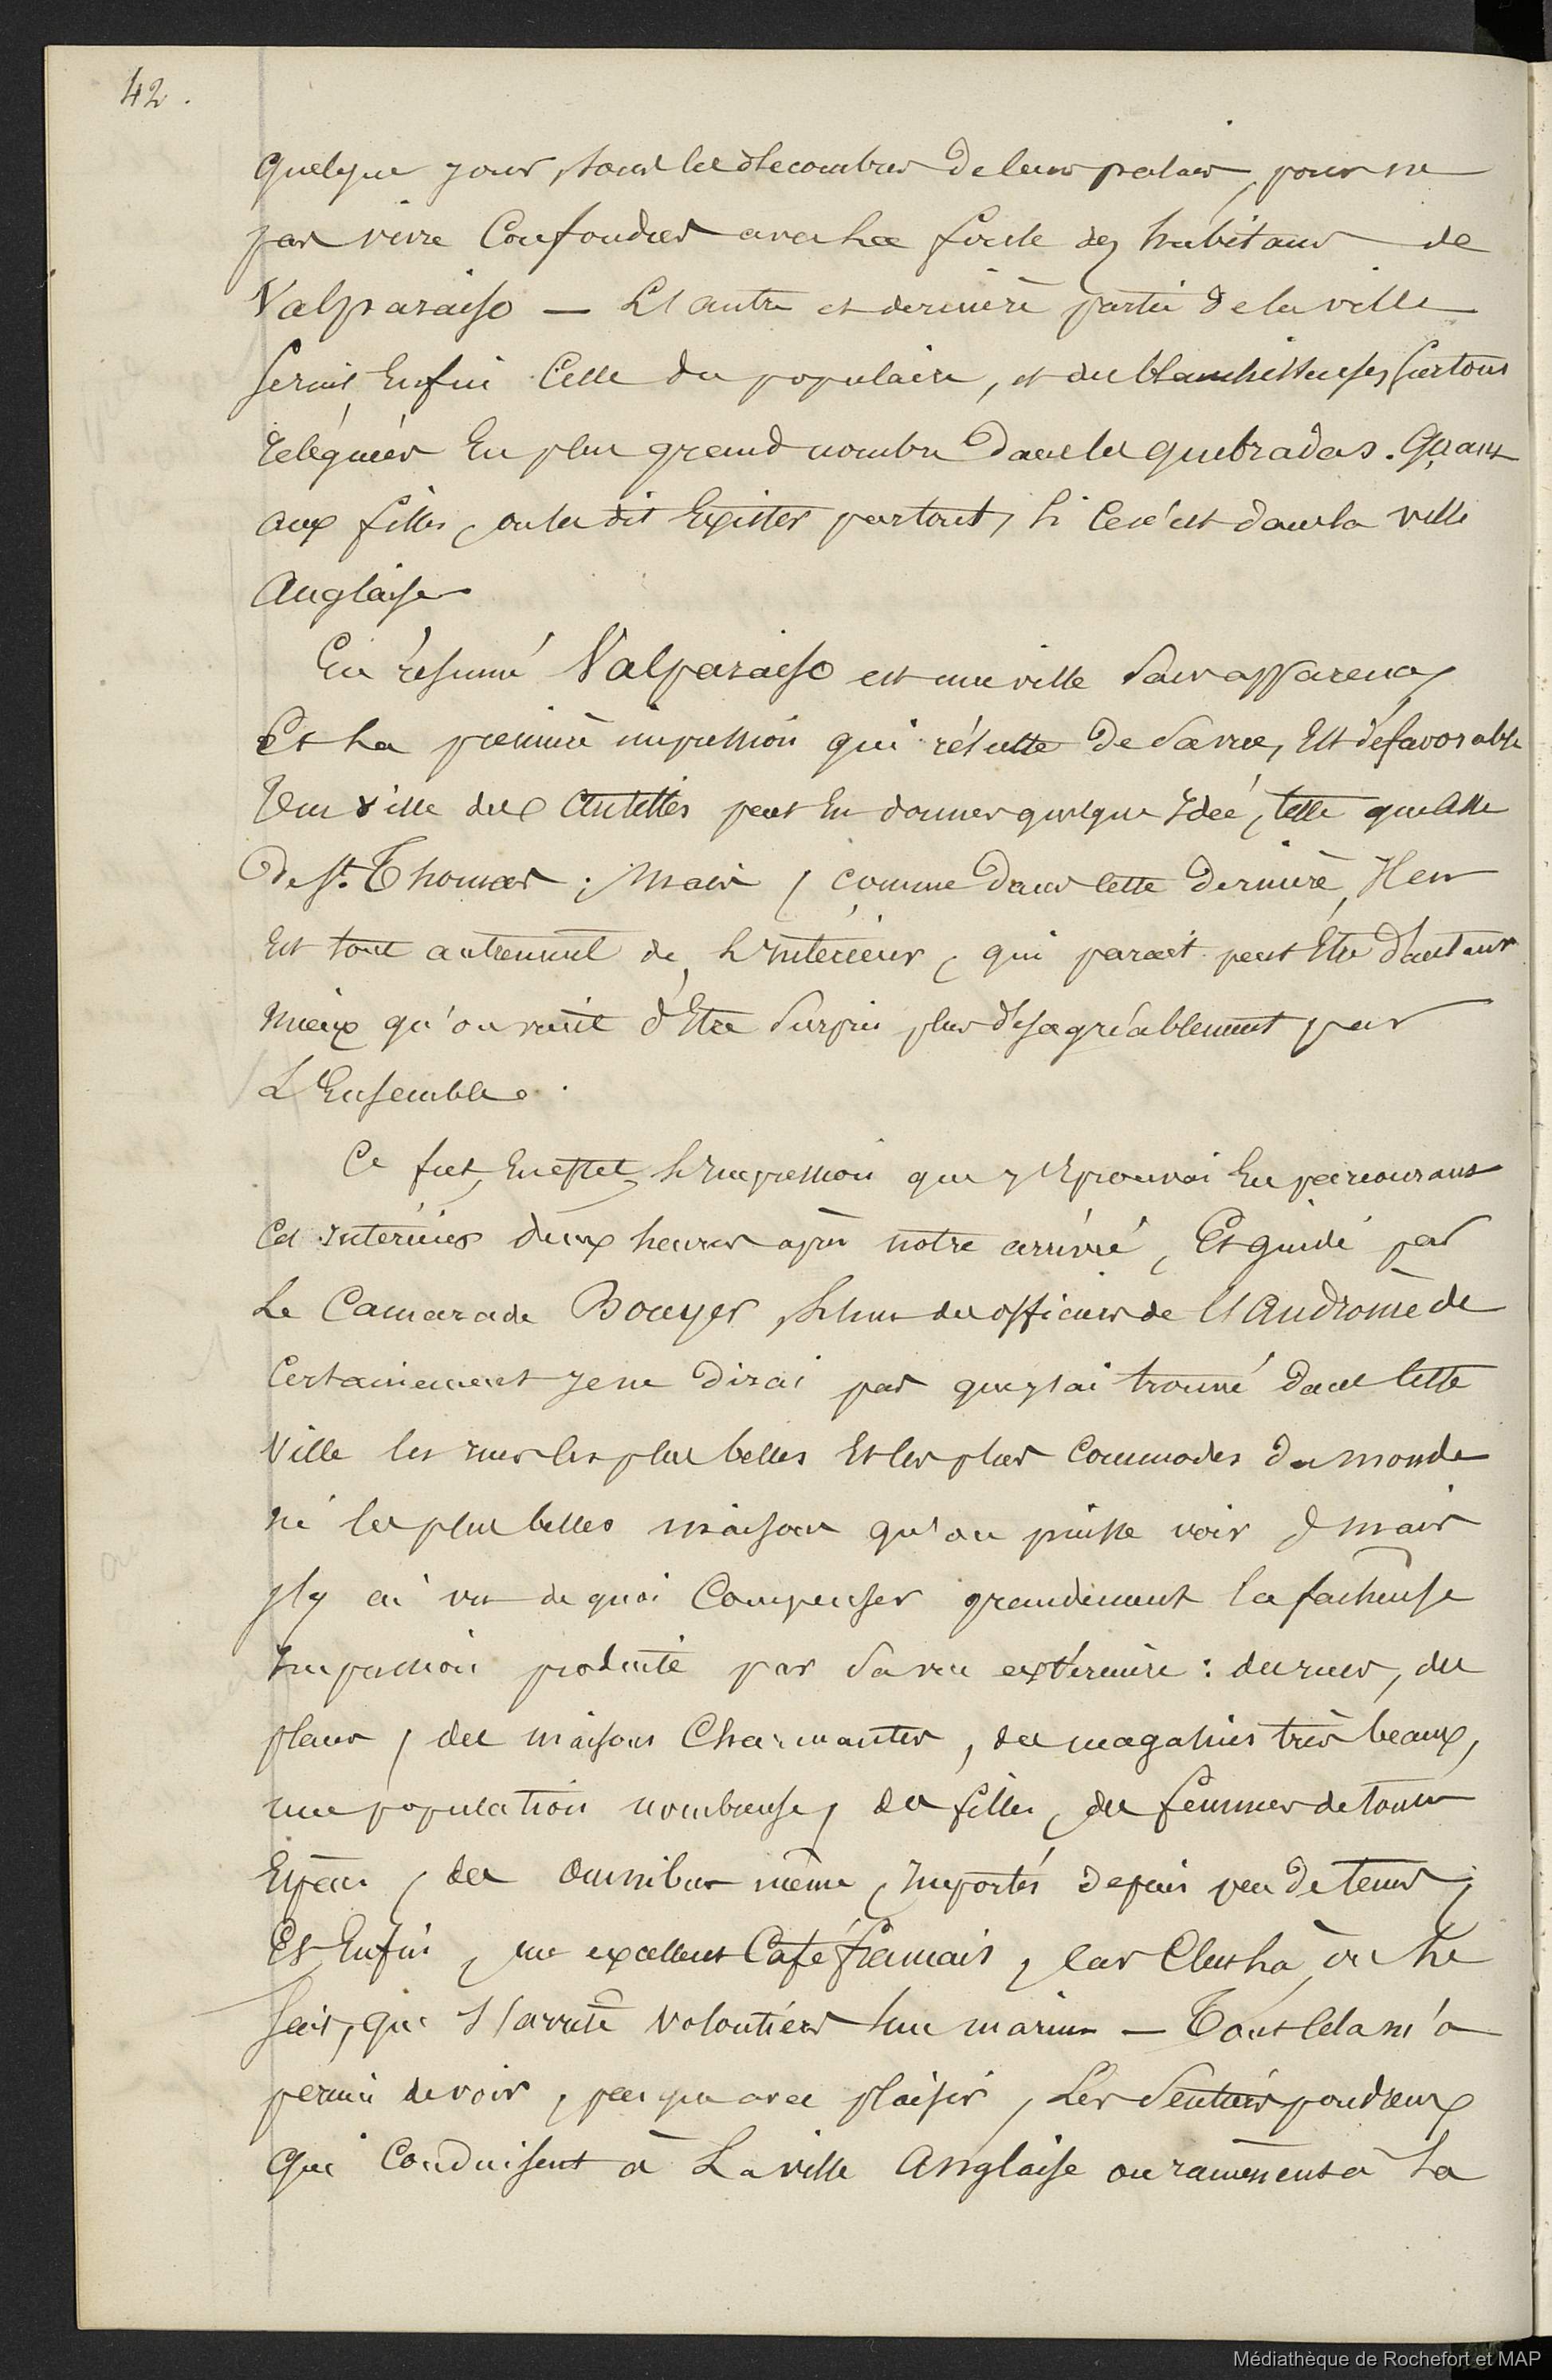 42.
quelque jour, sous les décombres de leurs palais, pour ne
pas vivre Confondus avec La foule des habitans de
Valparaiso — L'autre et dernière partie de la ville
serait Enfin Celle du populaire, et des blanchisseuses surtout
reléguées En plus grand nombre dans les quebradas. Quant
aux filles, on les dit Exister partout, si Ce n'est dans la ville
Anglaise
En résumé Valparaiso est une ville sans apparence,
Et La première impression qui résulte de sa vue, Est défavorable
Une ville des Antilles peut En donner quelque Idée, telle que Celle
De St. Thomas ; mais, comme dans cette dernière, Il en
Est tout autrement de L'Intérieur, qui parait peut Etre d'autant
mieux qu'on vient d'Etre surpris plus désagréablement par
L'Ensemble.
Ce fut, En effet, L'Impression que j'Eprouvai En parcourant
Cet Intérieur deux heures après notre arrivée, Et guidé par
Le Camarade Bouyer, L'un des officiers de l'Andromède
Certainement Je ne dirai pas que j'ai trouvé dans cette
Ville les rues les plus belles Et les plus Commodes du monde
ni les plus belles maisons qu'on puisse voir, mais
j'y ai vu de quoi Compenser grandement la facheuse
Impression produite par sa vue extérieure : des rues, des
places, des maisons Charmantes, des magasins très beaux,
une population nombreuse, des filles, des femmes de toutes
Espèces, des Omnibus même, Importés depuis peu de tems,
Et Enfin, un excellent Café français, Car C'est là, on Le
sait, que s'arrête volontiers Un marin — Tout Cela m'a
permis de voir, presque avec plaisir, Les Sentiers poudreux
Qui Conduisent à La ville Anglaise ou ramènent à La
Médiathèque de Rochefort et MAP